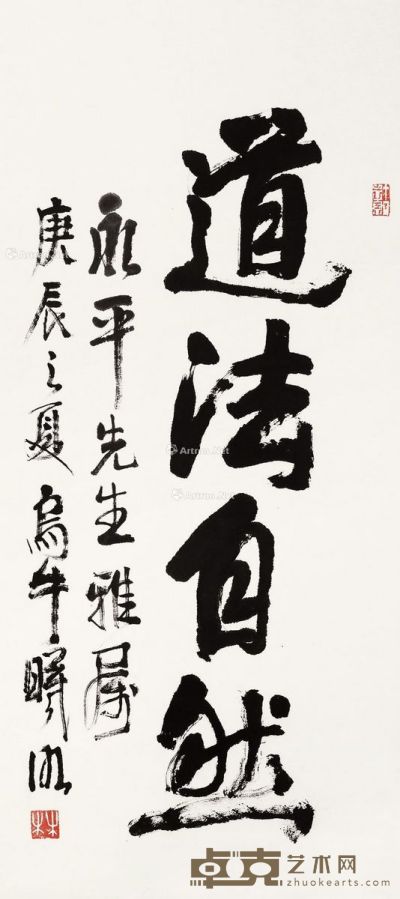 道法自然
永平先生雅属
庚辰之夏 乌牛
Artron.Net
Artron.Net
卓克艺术网
zhuokearts.com